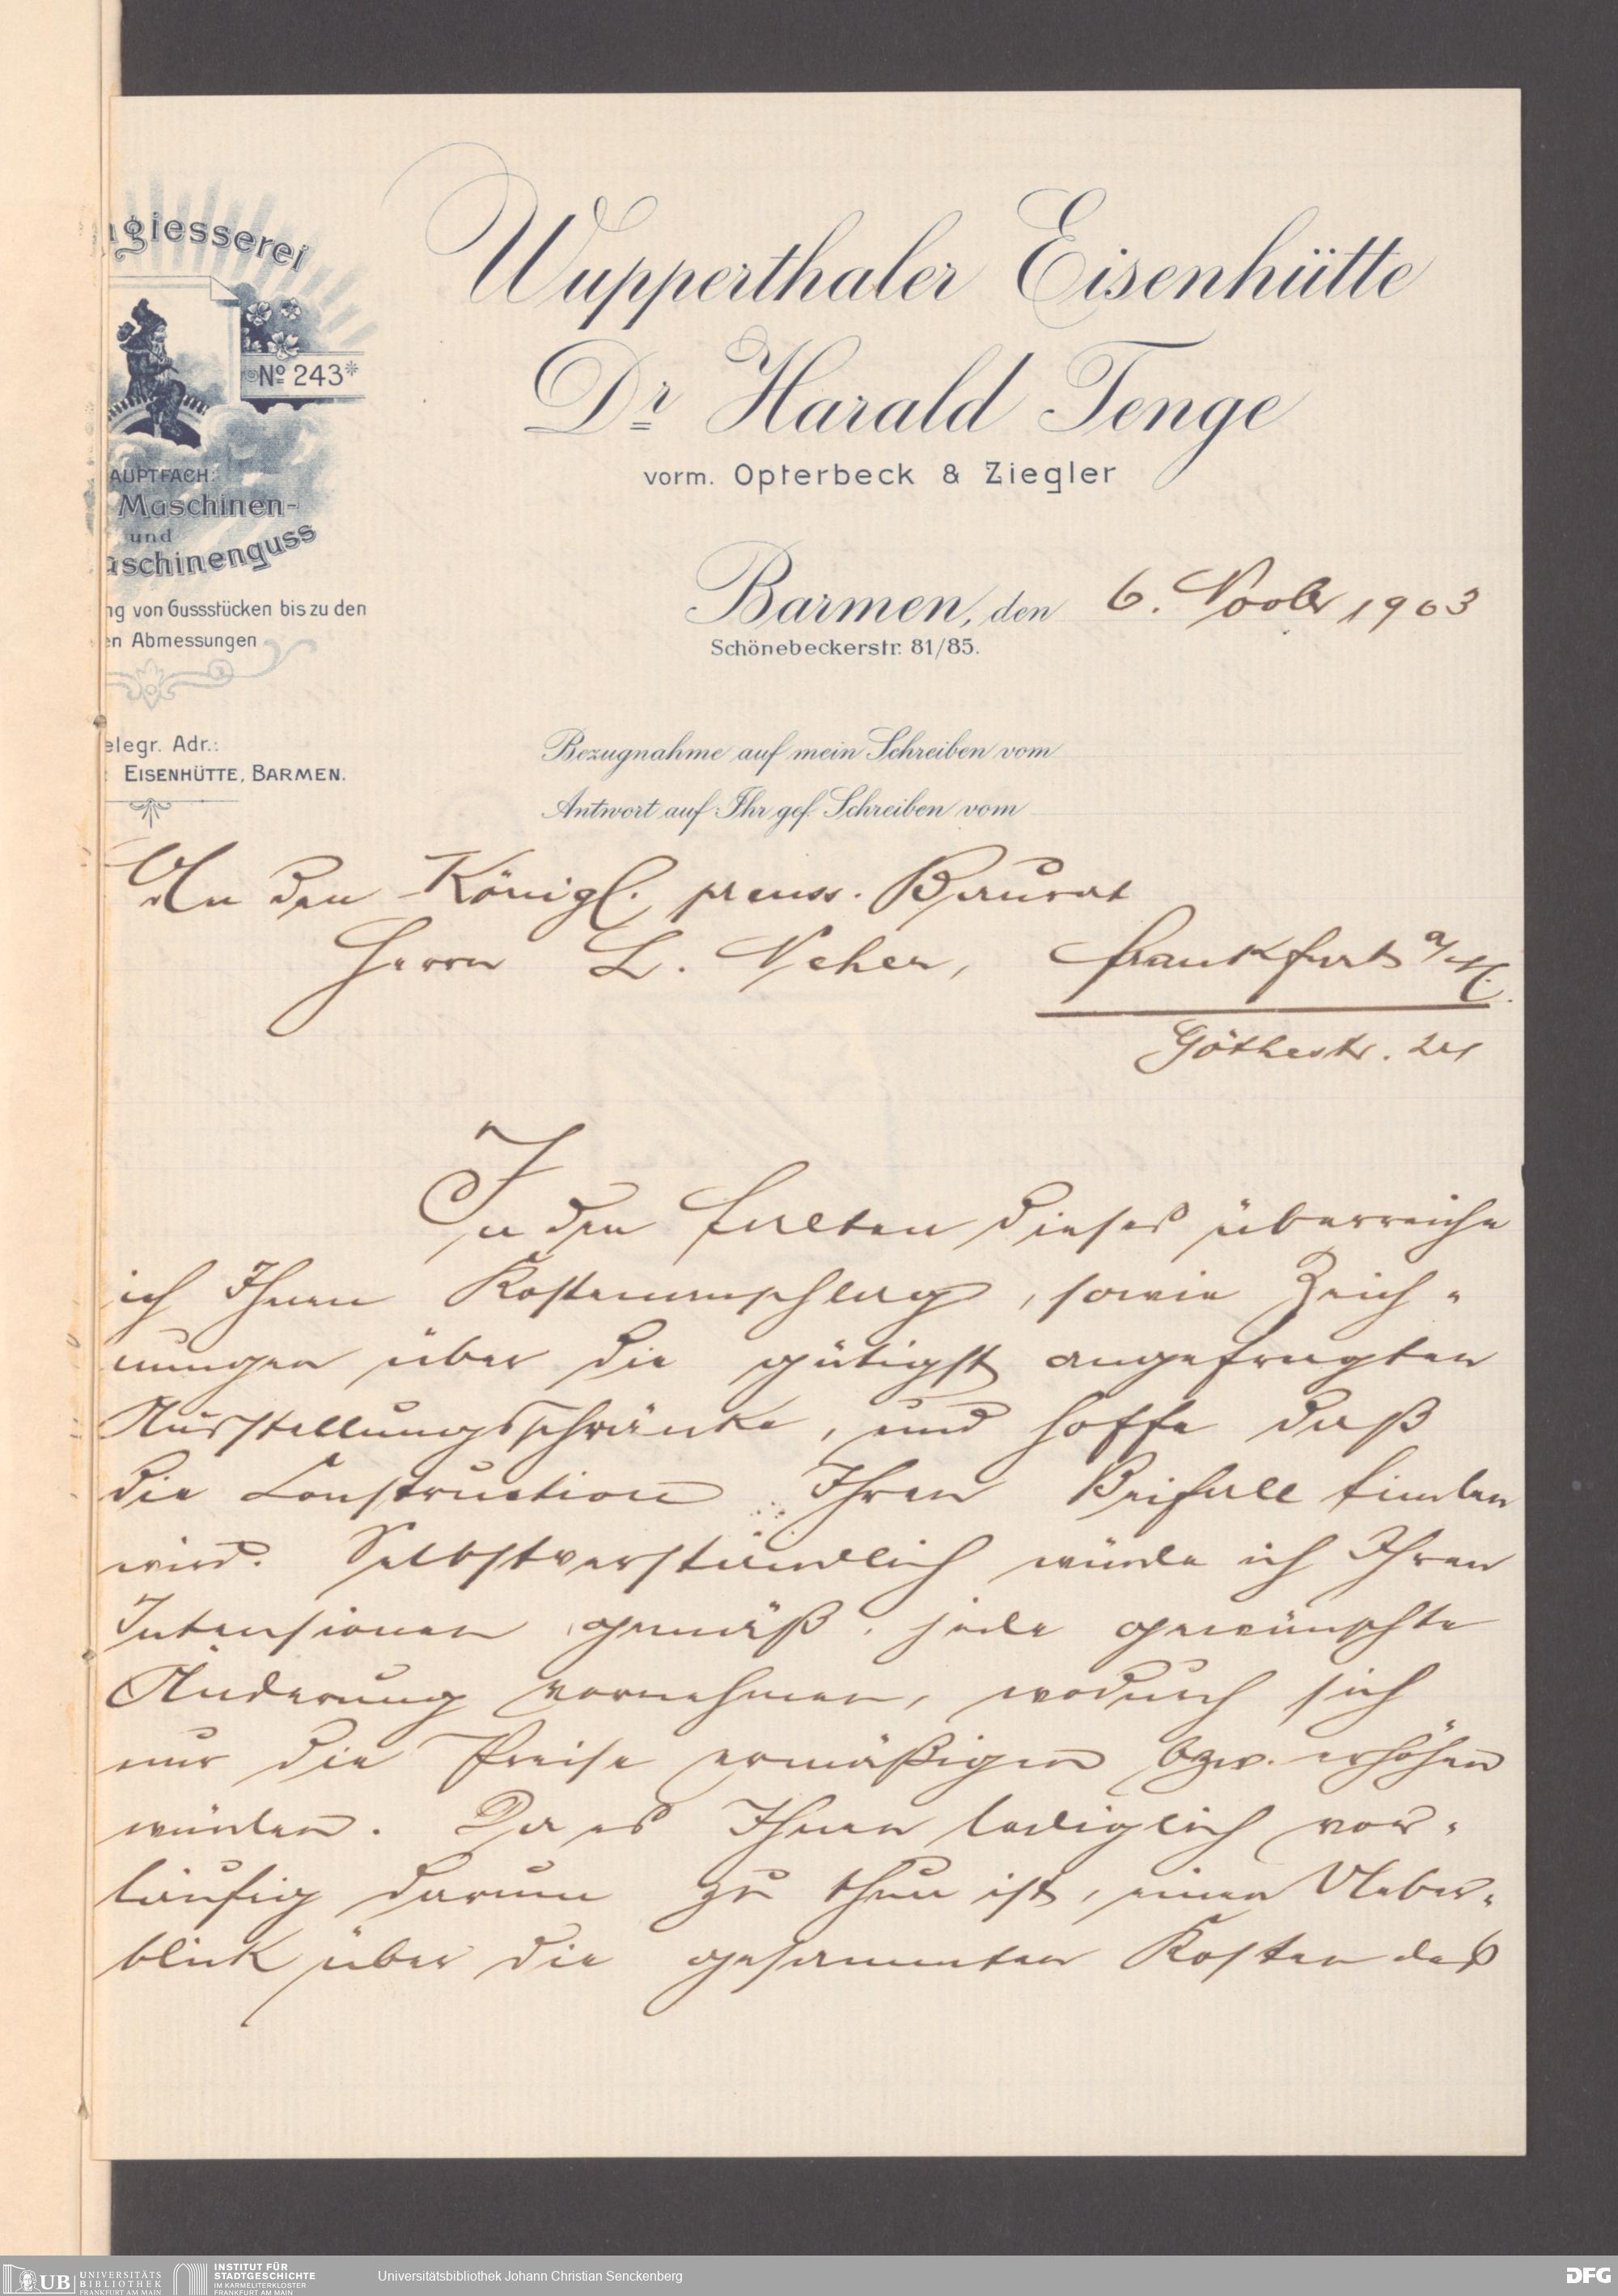 giesserei
No 243*
AUPTFACH:
Maschinen-
und
aschinenguss
ng von Gussstücken bis zu den
en Abmessungen
elegr. Adr.:
: EISENHÜTTE, BARMEN.
Wupperthaler Eisenhütte
Dr Harald Tenge
vorm. Opterbeck & Ziegler
Barmen, den 6. Novbr 1903
Schönebeckerstr. 81/85.
Bezugnahme auf mein Schreiben vom
Antwort auf Ihr gef. Schreiben vom
An den Königl. preuss. Baurat
Herrn L. Neher, Frankfurt a/M.
Göthestr. 24
In den Falten dieses überreiche
ich Ihnen Kostenanschlag, sowie Zeich-
nungen über die gütigst angefragten
Ausstellungsschränke, und hoffe daß
die Construction Ihren Beifall finden
wird. Selbstverständlich würde ich Ihren
Intensionen gemäß jede gewünschte
Änderung vornehmen, wodurch sich
nur die Preise ermäßigen bzw. erhöhen
würden. Da es Ihnen lediglich vor-
läufig darum zu thun ist, einen Ueber-
blick über die gesammten Kosten des
UB UNIVERSITÄTS
BIBLIOTHEK
FRANKFURT AM MAIN
INSTITUT FÜR
STADTGESCHICHTE
IM KARMELITERKLOSTER
FRANKFURT AM MAIN
Universitätsbibliothek Johann Christian Senckenberg
DFG